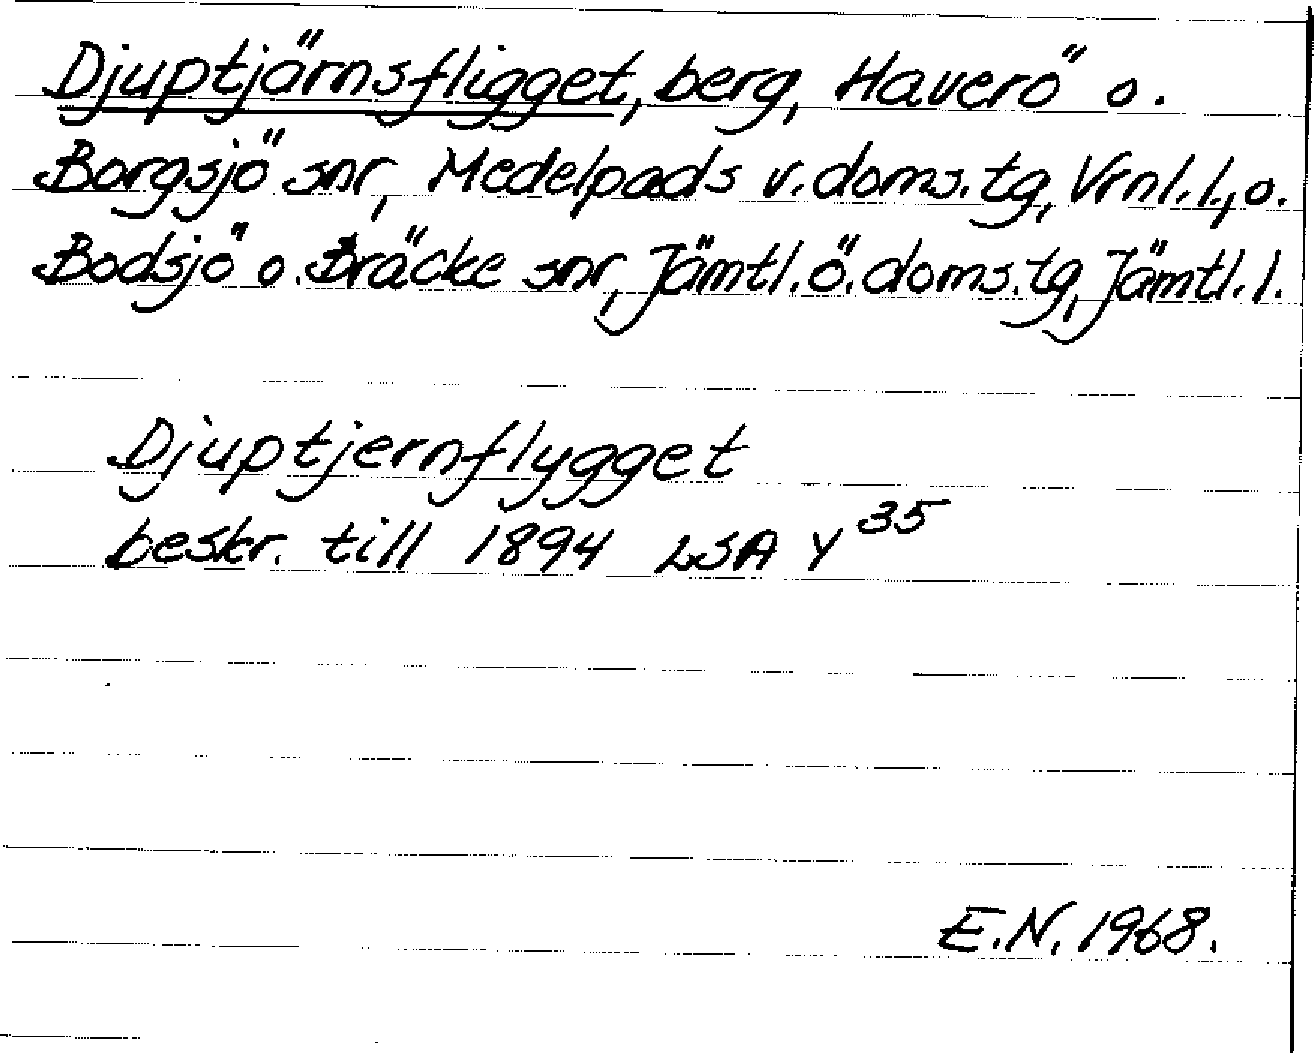 Djuptjärnsfligget, berg, Haverö o.
Borgsjö snr, Medelpads v. doms. tg, Vrnl. l., o.
Bodsjö o. Bräcke snr, Jämtl. ö. doms. tg, Jämtl. l.
Djuptjernflygget
beskr. till 1894 LSA Y 35
E.N. 1968.